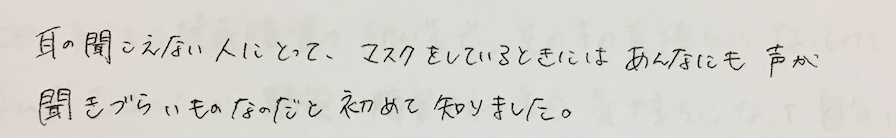 耳の聞こえない人にとって、マスクをしているときにはあんなにも声が
聞きづらいものなのだと初めて知りました。